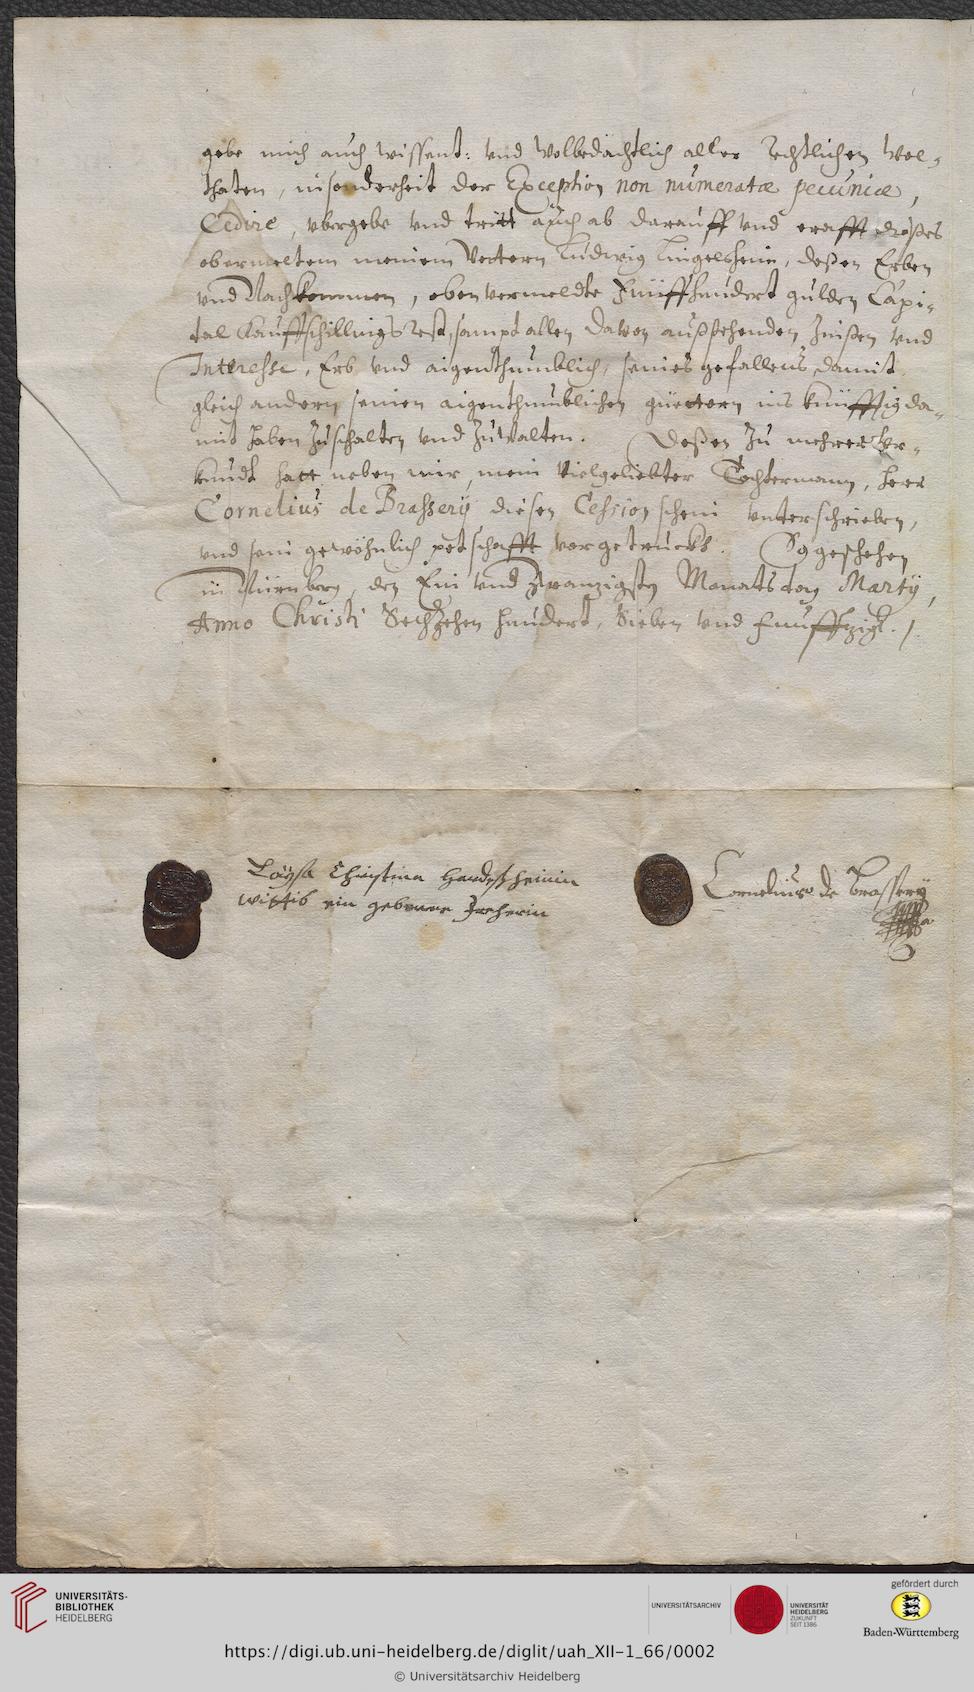 gebe mich auch wissent: vnd wolbedächtlich aller rechtlichen wol-
thaten, insonderheit der Exception non numeratæ pecuniæ,
Cedire, vbergebe vnd tritt auch ab darauff vnd crafft dießes
obermeltem meinem Vettern Ludwig Lingelsheim, deßen Erben
vnd Nachkommen, obenvermeldte Fünffhundert gulden Capi-
tal Kauffschillings Rest, sampt allen davon außstehenden Zinßen vnd
Interesse, Erb vnd aigenthumblich, seines gefallens damit
gleich andern seinen aigenthumblichen güettern ins künfftig da-
mit haben zuschalten vnd zuwalten. Deßen zu mehrer Vr-
kundt hatt neben mir, mein vielgeliebter Tochtermann, herr
Cornelius de Brassery diesen Cession schein vnterschrieben,
vnd sein gewöhnlich petschafft vorgetruckt. So geschehen
in Nürnberg, den Ein vnd zwanzigsten Monatstag Martÿ,
Anno Christi Sechzehen hundert, Sieben vnd Funffzigk./.
Loÿsa Christina
wittib ein geborne
Cornelius de Brasserÿ
UNIVERSITÄTS-
BIBLIOTHEK
HEIDELBERG
UNIVERSITÄTSARCHIV
UNIVERSITÄT
HEIDELBERG
ZUKUNFT
SEIT 1386
gefördert durch
Baden-Württemberg
https://digi.ub.uni-heidelberg.de/diglit/uah_XII-1_66/0002
© Universitätsarchiv Heidelberg